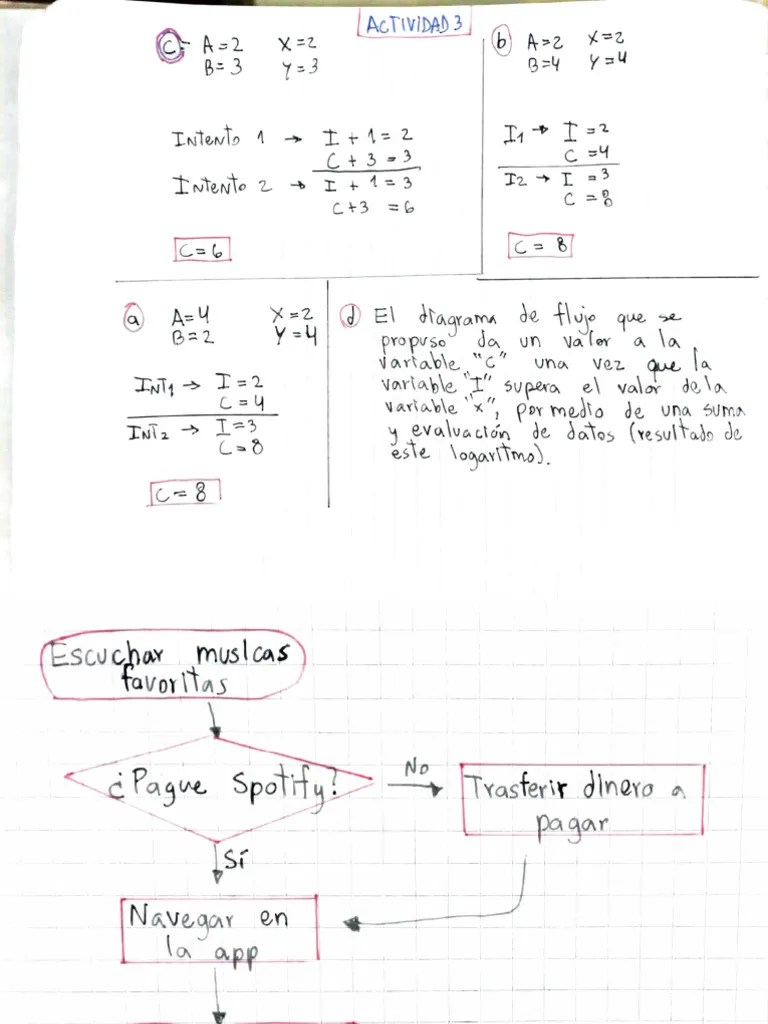 ACTIVIDAD 3
c A=2 X=2
B=3 Y=3
Intento 1 → I + 1 = 2
C + 3 = 3
Intento 2 → I + 1 = 3
C+3 = 6
C=6
b A=2 X=2
B=4 Y=4
I1 → I=2
C=4
I2 → I=3
C=8
C= 8
a A=4 X=2
B=2 Y=4
INT1 → I=2
C=4
INT2 → I=3
C=8
C=8
d El diagrama de flujo que se
propuso da un valor a la
variable "C" una vez que la
variable "I" supera el valor de la
variable "x", por medio de una suma
y evaluación de datos (resultado de
este logaritmo).
Escuchar musicas
favoritas
¿Pague Spotify?
No
Trasferir dinero a
pagar
Sí
Navegar en
la app